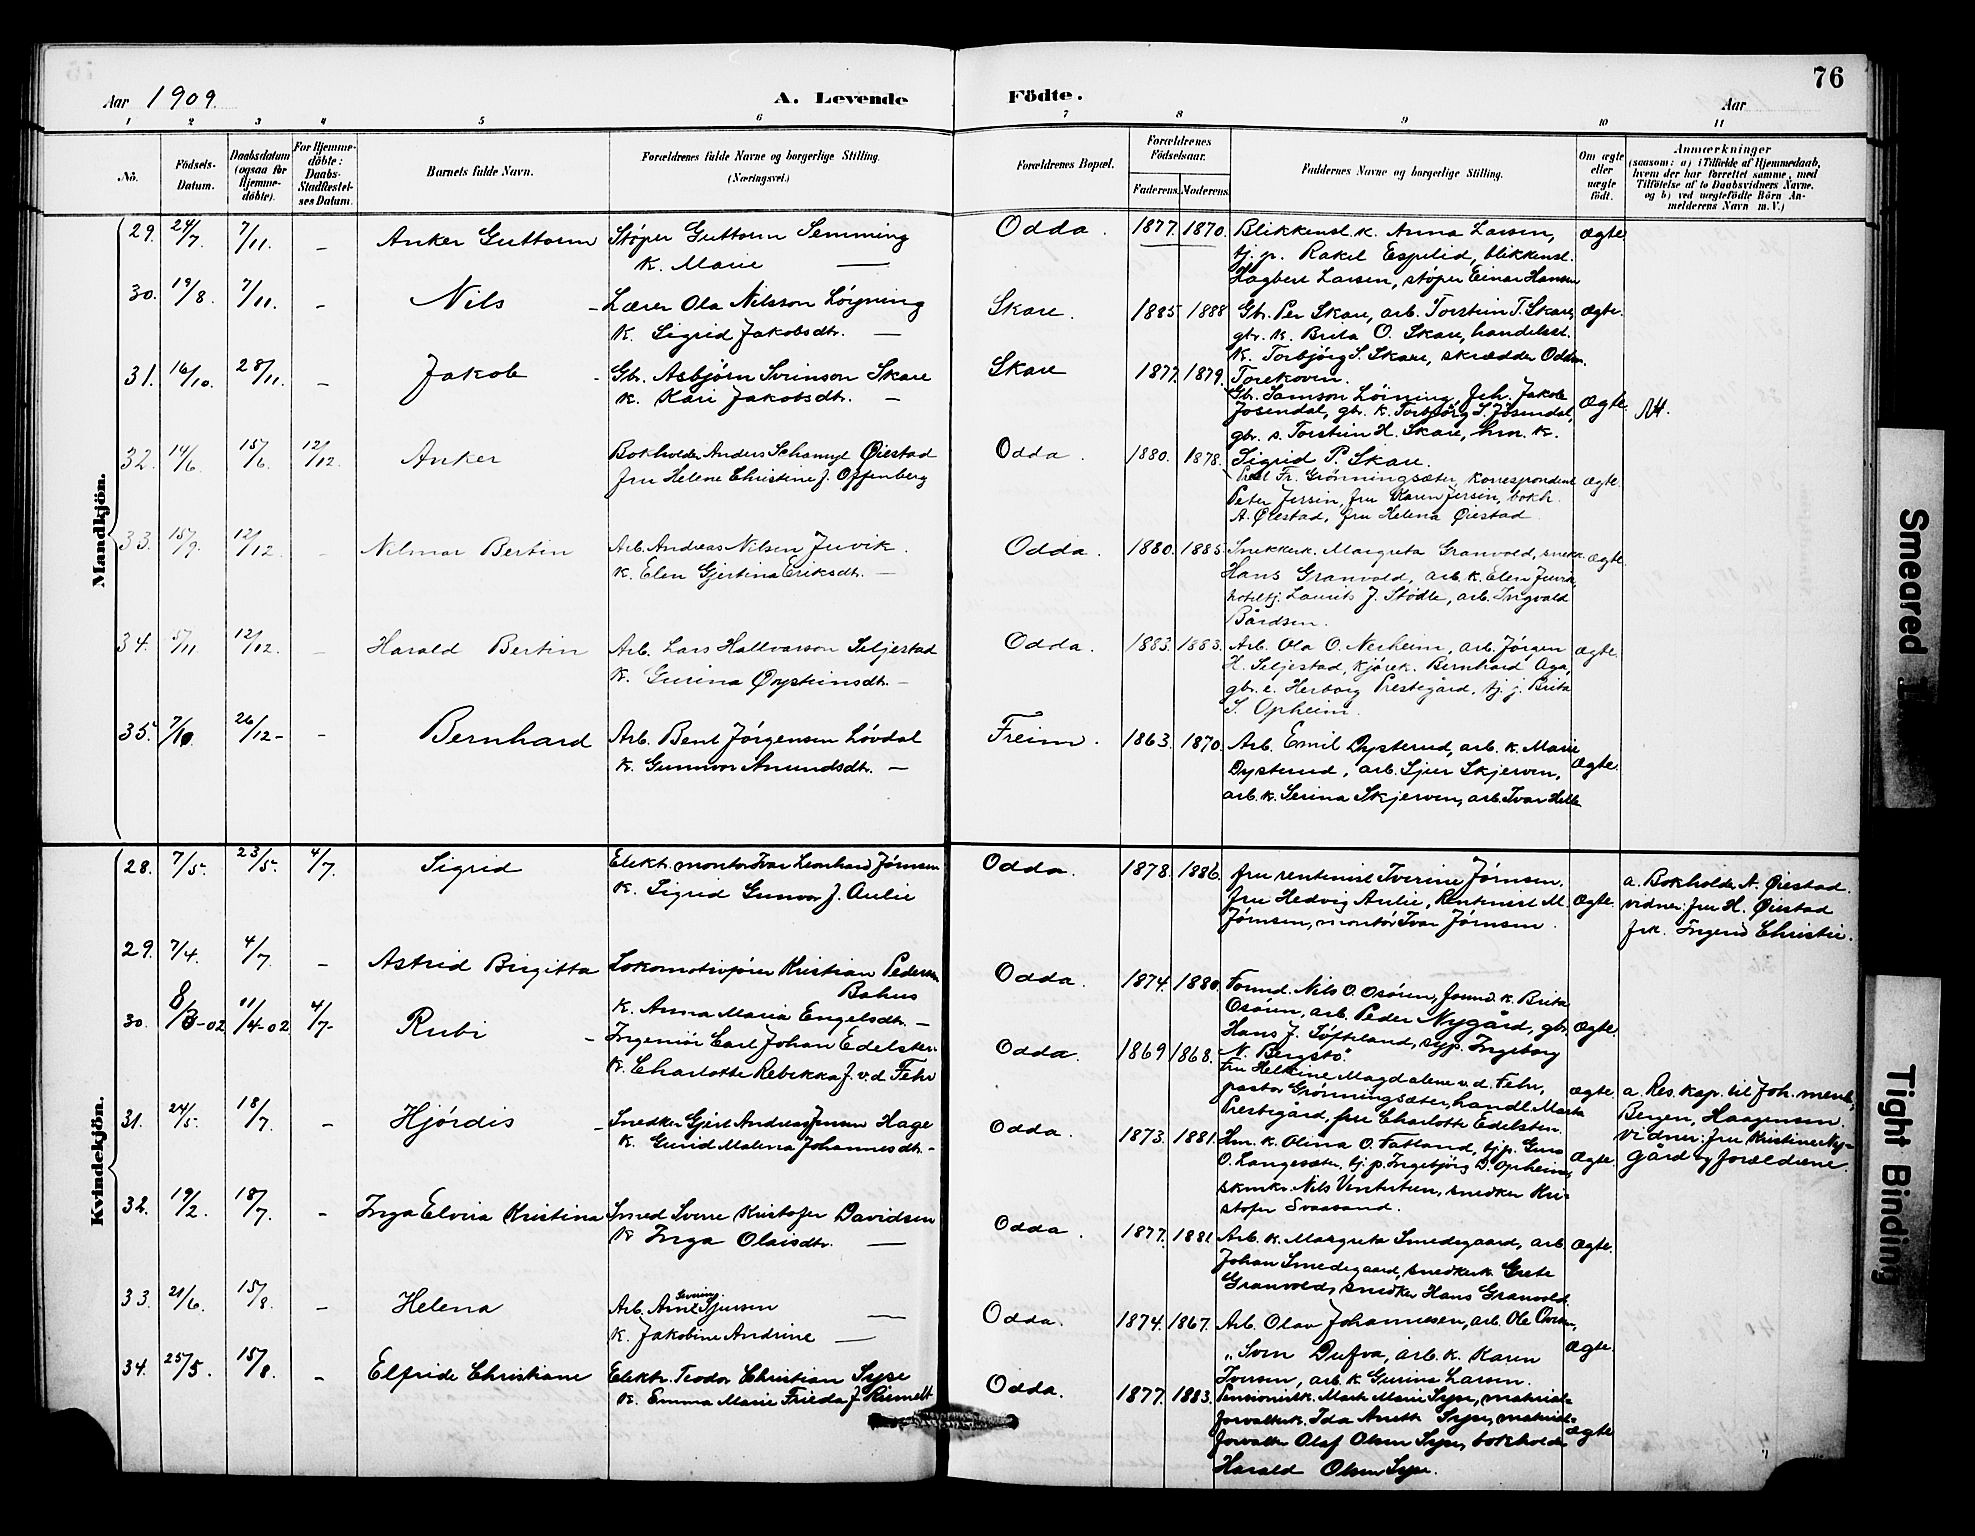 76
Aar 1909.
A. Levende Födte.
Aar
1 2 3 4 5 6 7 8 9 10 11
No.
Födsels-Datum.
Daabsdatum (ogsaa for Hjemme-döbte).
For Hjemme-döbte: Daabs-Stadfæstel-ses Datum.
Barnets fulde Navn.
Forældrenes fulde Navne og borgerlige Stilling. (Næringsvei.)
Forældrenes Bopæl.
Forældrenes Födselsaar.
Faderens. Moderens.
Faddernes Navne og borgerlige Stilling.
Om ægte eller uægte født.
Anmærkninger
(saasom: a) i Tilfælde af Hjemmedaab, hvem der har forrettet samme, med Tilføielse af to Daabsvidners Navne, og b) ved uægtefödte Börn An-melderens Navn m. V.)
Mandkjön.
29. 24/7. 7/11. – Anker Guttorm Støper Guttorm Semming
K. Marie —
Odda. 1877. 1870. Blikkensl. k. Anna Larsen,
tj. p. Rakel Espelid, blikkensl.
Hagbert Larsen, støper Einar Hansen
ægte
30. 19/8. 7/11. – Nils Lærer Ola Nilsson Löyning
K. Sigrid Jakobsdtr. —
Skare. 1885. 1888 Gbr. Per Skare, arb. Torstein T. Skare,
gbr. k. Brita O. Skare, handelsst.
K. Torbjörg S. Skare, skrædder Odd
ægte.
31. 16/10. 28/11. – Jakob Gbr. Asbjörn Svinson Skare
K. Kari Jakobsdtr. –
Skare 1877. 1879. Gbr. Samson Löining, Jakob
Jösendal, gbr. k. Torbjörg S. Jösendal,
gbr. s. Torstein H. Skare, hm. k.
Sigrid P. Skare.
Ægte.
32. 14/6. 15/6. 12/12. Anker Bokholder Anders Schamyl Øiestad
fru Helene Christine J. Offenberg
Odda. 1880. 1878. Præst Fr. Grönningsæter, korrespondent
Peter Jersin, fru Karen Jersin, bokh.
A. Øiestad, fru Helena Øiestad
ægte.
33. 15/9. 12/12. – Nilmar Bertin Arb. Andreas Nilsen Juvik.
K. Elen Gjertina Eriksdtr. –
Odda. 1880. 1885. Snekkerk. Margreta Granvold, snekk.
Hans Granvold, arb. k. Elen
hoteltj. Laurits J. Stödle, arb. Ingvald
Bårdsen.
ægte.
34. 5/11. 12/12. – Harald Bertin Arb. Lars Hallvarson Seljestad
K. Gurina Øysteinsdtr. –
Odda. 1883. 1883. Arb. Ola O. Nerheim, arb. Jörgen
H. Seljestad, kjörek. Bernhard Aga,
gbr. e. Herborg Prestegård, tj. j. Brita
S. Opheim.
ægte.
35. 7/10. 26/12 – – Bernhard Arb. Bent Jörgensen Lövdal
K. Gunnvor Amundsdtr. –
Freim. 1863. 1870. Arb. Emil Dysterud, arb. k. Marie
Dysterud, arb. Sjur Skjerven,
arb. k. Serina Skjerven, arb. Ivar Helle
Ægte.
Kvindekjön.
28. 7/5. 23/5. 4/7. Sigrid Elektr. montör Ivar Leonhard Jörnsen
K. Sigrid Gunvor J. Aulie
Odda. 1878. 1886. fru rentenist Iverine Jörnsen.
fru Hedvig Aulie, Rentenist M.
Jörnsen, montör Ivar Jörnsen.
Ægte.
a. Bokholder A. Øiestad.
vidner: fru H. Øiestad
frk. Ingerd Christie.
29. 7/4. 4/7. – Astrid Birgitta Lokomotivförer Kristian Pedersen
Bohus
K. Anna Maria Engelsdtr. –
Odda. 1874. 1880. Formd. Nils O. Osören, formd. k. Brita
Osören, arb. Peder Nygård, gbr.
Hans J. Töfteland, syp. Ingeborg
N. Bergstö.
Ægte.
30. 8/3-02 11/4-02 4/7- Rubi Ingeniör Carl Johan Edelsten.
K. Charlotte Rebekka J. v. d. Fehr
Odda. 1869 1868. Fru Helmine Magdalene v. d. Fehr,
pastor Grönningsæter, handl. Marta
Prestegård, fru Charlotte Edelsten.
ægte.
a. Res. kap. til Joh. menh.,
Bergen, Haagensen.
vidner: fru Kristine Ny-
gård og forældrene.
31. 24/5. 18/7. – Hjördis Snedker Gjert Andreas Jensen Hage
K. Gurid Malena Johannesdtr. –
Odda. 1873. 1881. Hm. k. Olina O. Fatland, tj. p. Guro
O. Langesæter, tj. p. Ingebjörg D. Opheim,
skmkr. Nils Vinterten, snedker Kri-
stofer Svaasand.
Ægte.
32. 19/2. 18/7. – Inga Elvira Kristina Smed Sverre Kristofer Davidsen
K. Inga Olaisdtr. —
Odda. 1877. 1881 Arb. k. Margreta Smedegaard, arb.
Johan Smedegaard, snedkerk. Grete
Granvold, snedker Hans Granvold.
Ægte.
33. 21/6. 15/8. – Helena Arb. Arne Severin Sjursen —
K. Jakobine Andrine —
Odda. 1874. 1867. Arb. Olav Johannesen, arb. Ole
„ Sven Dufva, arb. k. Karen
Iversen, arb. k. Gurina Larsen.
Ægte.
34. 25/5. 15/8. – Elfride Christiane Elektr. Teodor Christian Sype
K. Emma Marie Frieda J. Rümelt
Odda. 1877. 1883. Pensionistk. Marte Marie Sype, material-
forvalterk. Ida Anette Sype, material-
forvalter Olaf Olsen Sype, bokholder
Harald Olsen Sype.
ægte
Smeared
Tight Binding